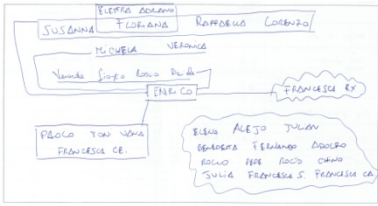 ELETTRA ADRIANO
SUSANNA FLORIANA RAFFAELLA LORENZO
MICHELA VERONICA
ENRICO
FRANCESCA EX
PAOLO TON VANA
FRANCESCA CE.
ELENA ALEJO JULIAN
BENEDETTA FERNANDO ADOLFO
ROCIO CHINO
JULIA FRANCESCA S. FRANCESCA CA